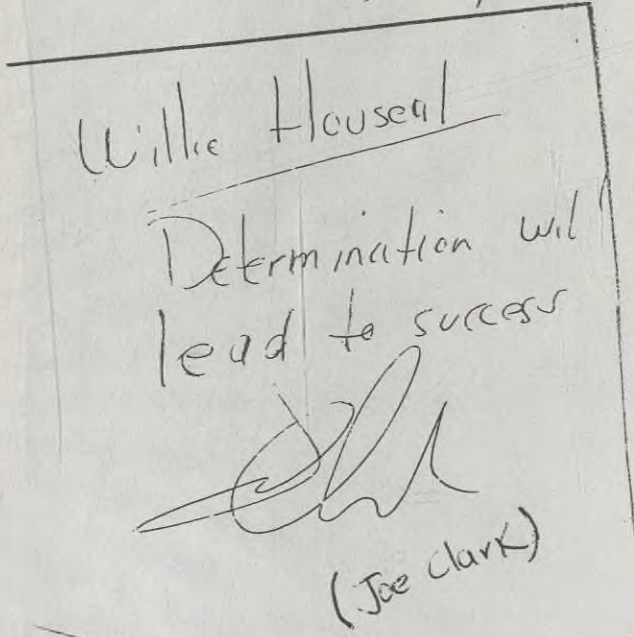 Willie Houseal
Determination will
lead to success
(Joe Clark)